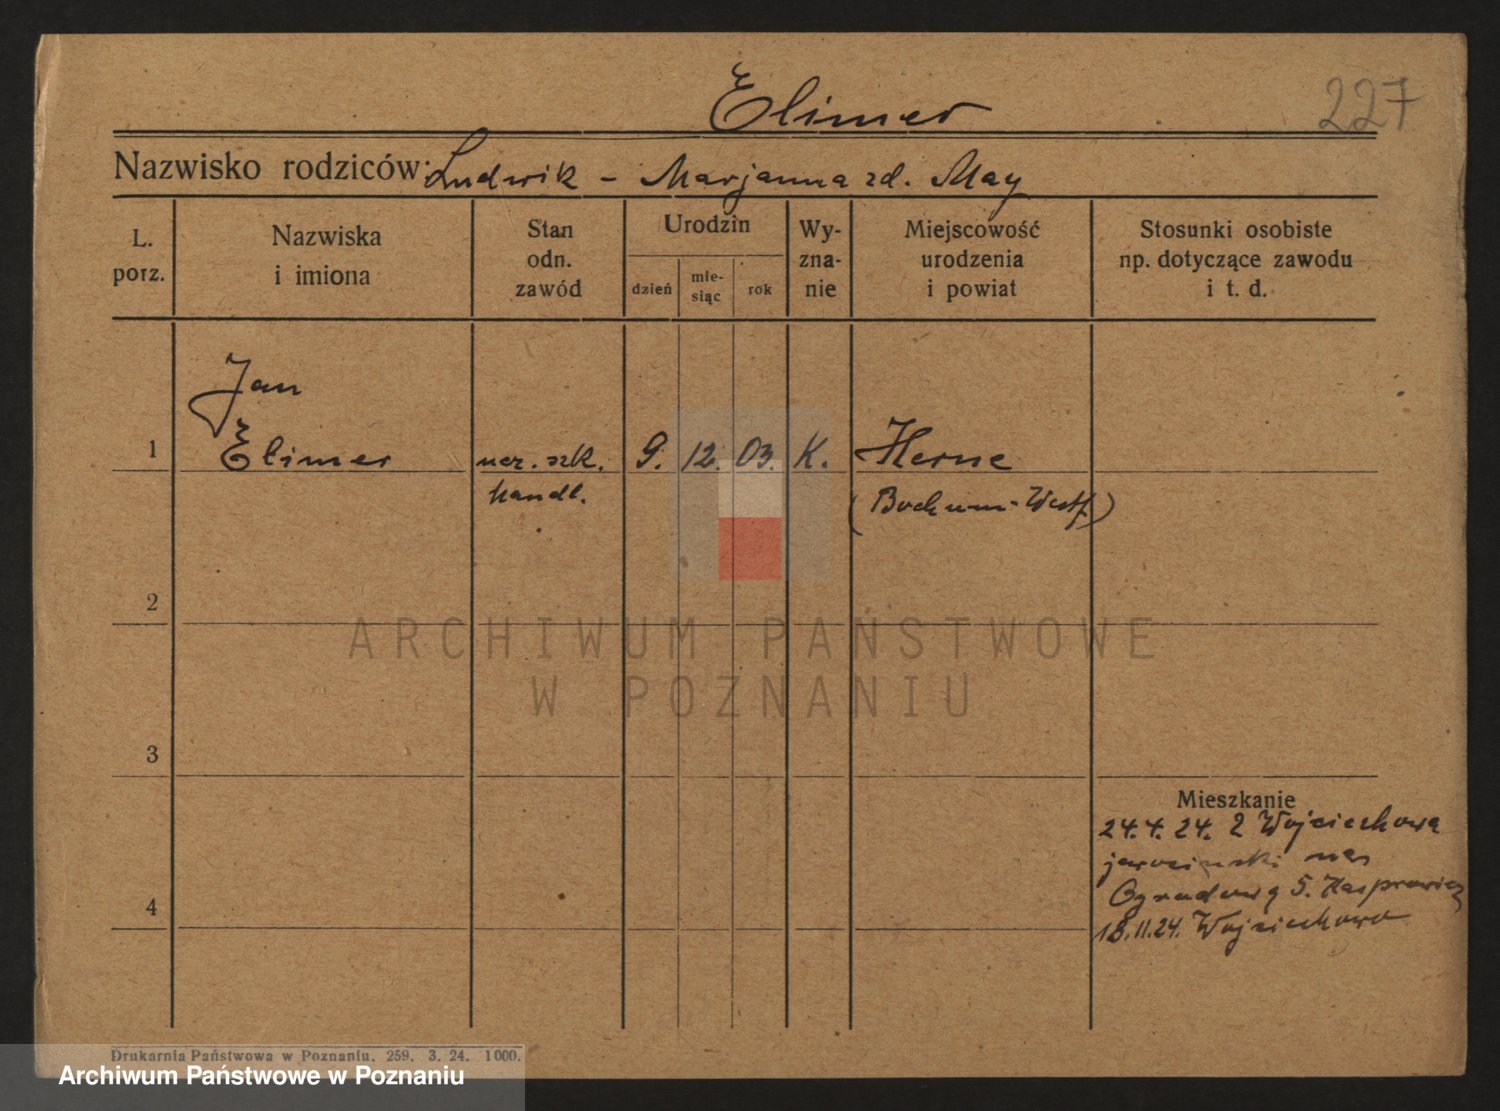 Elimer
227
Nazwisko rodziców: Ludwik - Marjanna zd. May
L. porz.
Nazwiska i imiona
Stan odn. zawód
Urodzin
dzień
mie-siąc
rok
Wy-zna-nie
Miejscowość urodzenia i powiat
Stosunki osobiste np. dotyczące zawodu i t. d.
Jan
1 Elimer ucz. szk. 9. 12. 03. K. Herne
handl. (Bochum-Westf)
2
ARCHIWUM PAŃSTWOWE
W POZNANIU
3
Mieszkanie
24.4.24. 2 Wojciechowa
jarociński
4 Ogrodową 5. Kasprowicz
18.11.24. Wojciechowo
Drukarnia Państwowa w Poznaniu. 259. 3. 24. 1000.
Archiwum Państwowe w Poznaniu